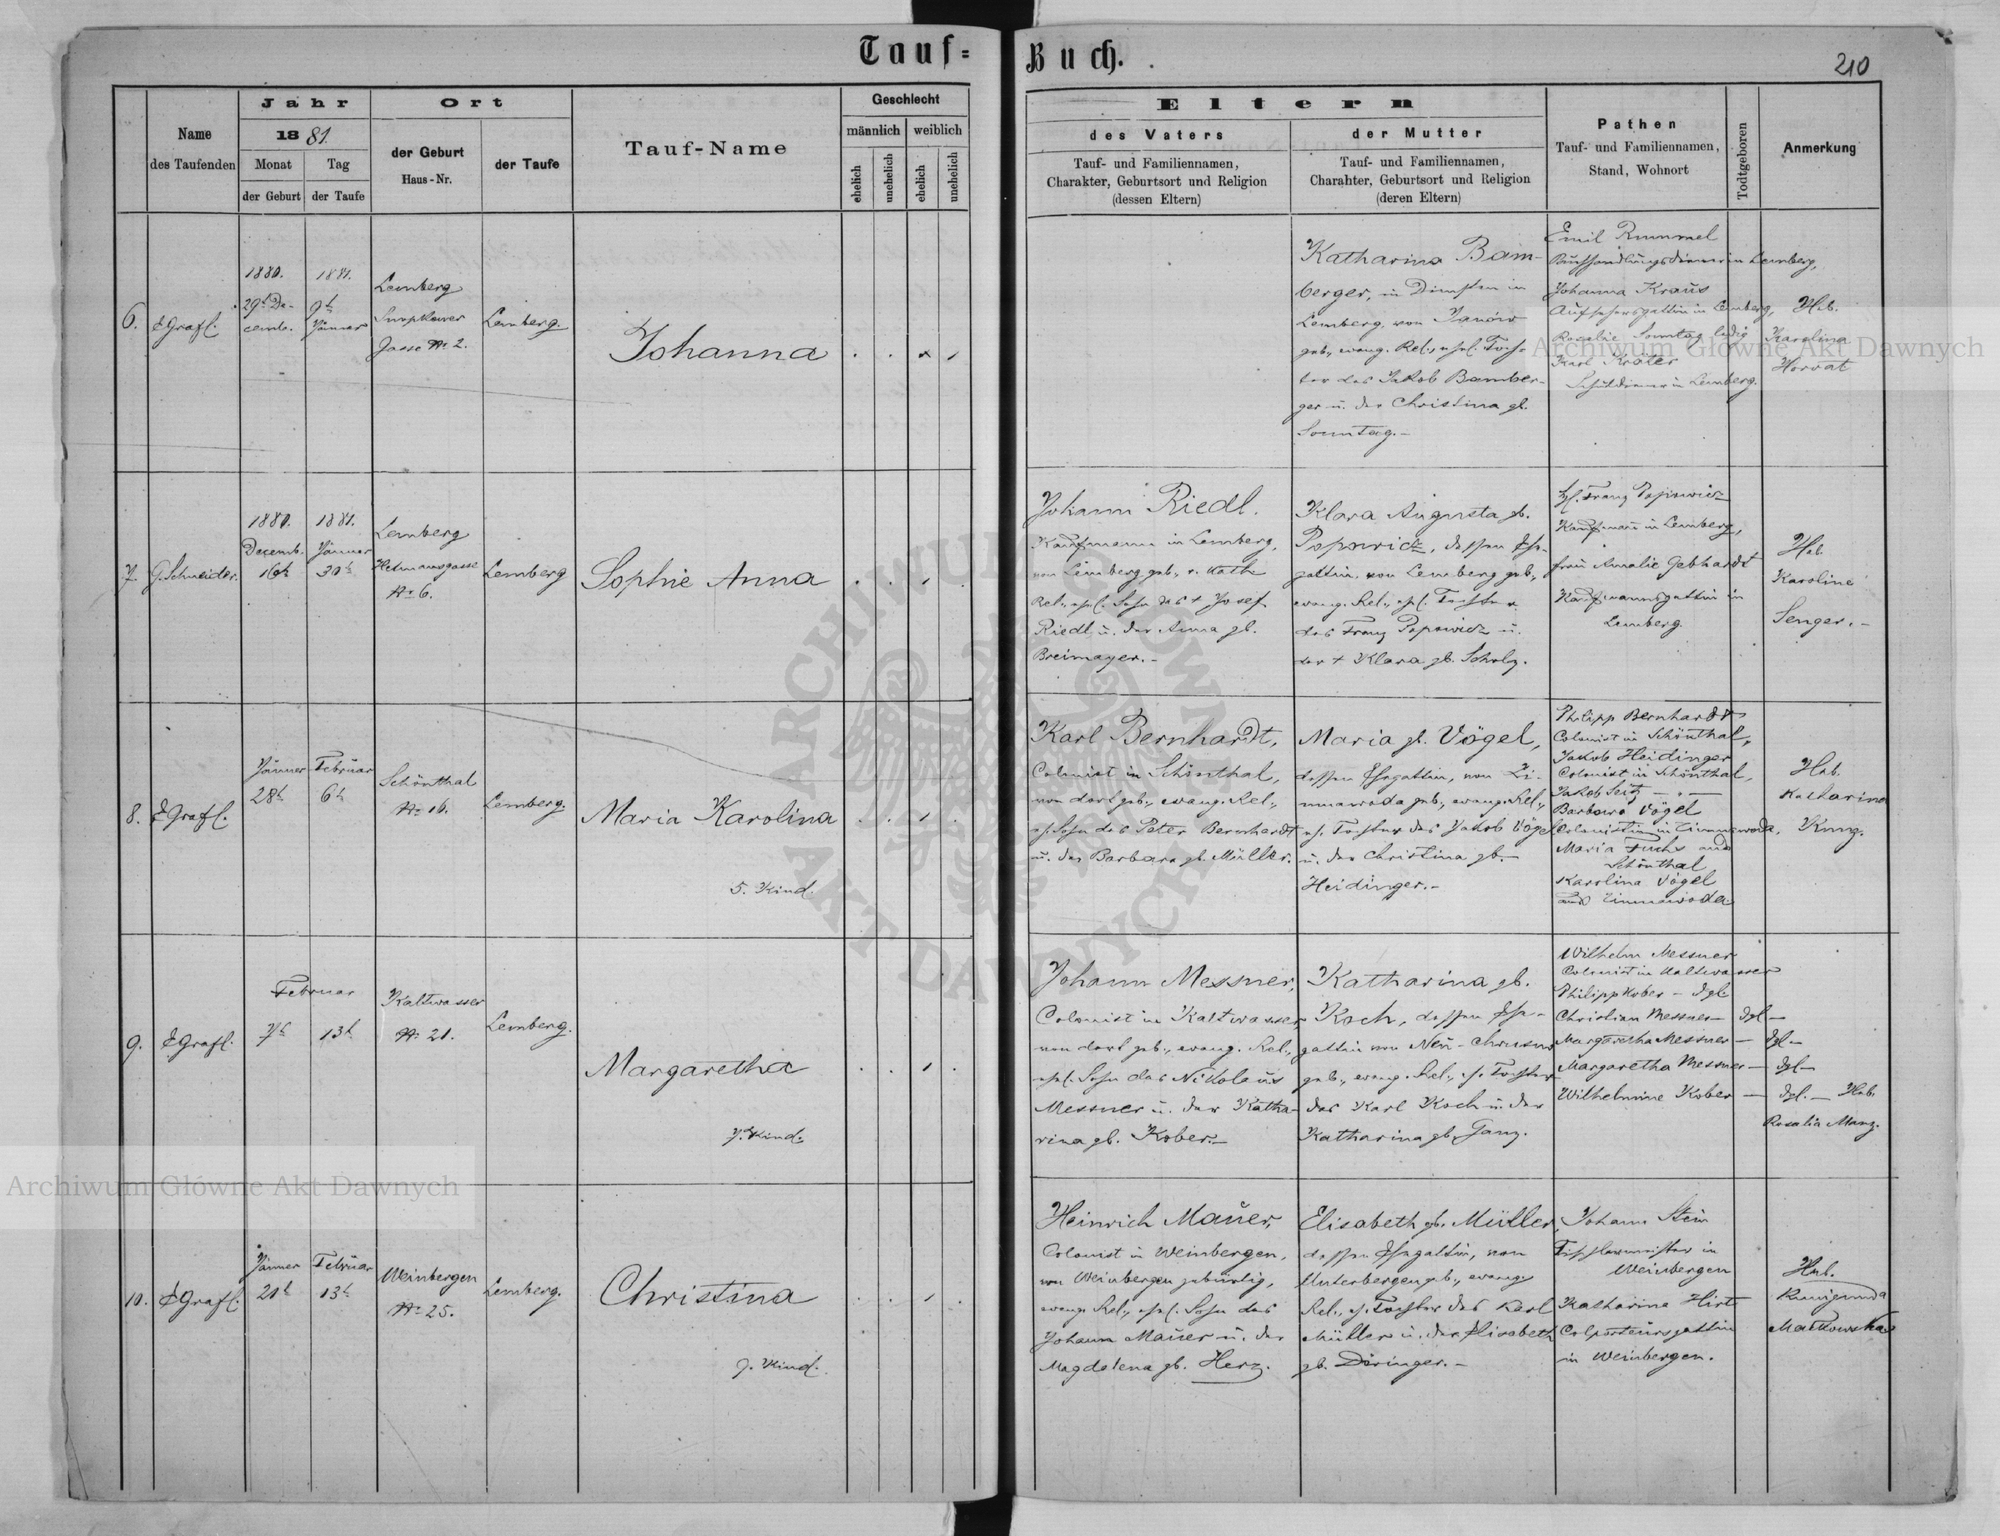 Tauf-
Buch.
210
Name
des Taufenden
Jahr
1881.
Monat
Tag
der Geburt
der Taufe
Ort
der Geburt
Haus-Nr.
der Taufe
Tauf-Name
Geschlecht
männlich
weiblich
ehelich
unehelich
ehelich
unehelich
Eltern
des Vaters
Tauf- und Familiennamen,
Charakter, Geburtsort und Religion
(dessen Eltern)
der Mutter
Tauf- und Familiennamen,
Charakter, Geburtsort und Religion
(deren Eltern)
Pathen
Tauf- und Familiennamen,
Stand, Wohnort
Todtgeboren
Anmerkung
6.
EGrafl.
1880.
29t De-
cemb.
1881.
9t
Jänner
Lemberg
Gasse No 2.
Lemberg.
Johanna
Katharina Bam-
berger, in Diensten in
Lemberg, von Janów
geb., evang. Rel., ehel. Toch-
ter des Jakob Bamber-
ger u. der Christina gb.
Sonntag.-
Emil Rummel
Buchhandlungsdiener in Lemberg,
Johanna Kraus
Aufsehersgattin in Lemberg,
Rosalie Sonntag ledig
Karl Kröter
Schuldiener in Lemberg.
Heb.
Karolina
Horvat
7.
G. Schneider.
1880.
Decemb.
16t
1881.
Jänner
30t
Lemberg
Hetmansgasse
No 6.
Lemberg
Sophie Anna
Johann Riedl.
Kaufmann in Lemberg,
von Lemberg geb., r. kath.
Rel., ehel. Sohn des + Josef
Riedl u. der Anna gb.
Breimayer.-
Klara Augusta gb.
Popowicz, dessen Ehe-
gattin, von Lemberg geb.,
evang. Rel., ehel. Tochter
des Franz Popowicz u.
der + Klara gb. Scholz.
Franz Popowicz
Kaufmann in Lemberg,
Frau Amalie Gebhardt
Kaufmannsgattin in
Lemberg.
Heb.
Karoline
Senger.-
8.
EGrafl.
Jänner
28t
Februar
6t
Schönthal
No 16.
Lemberg.
Maria Karolina
5. Kind.
Karl Bernhardt,
Colonist in Schönthal,
von dort geb., evang. Rel.,
eh. Sohn des Peter Bernhardt
u. der Barbara gb. Müller.
Maria gb. Vögel,
dessen Ehegattin, von Zi-
mnawoda geb., evang. Rel.,
eh. Tochter des Jakob Vögel
u. der Christina gb.
Heidinger.-
Philipp Bernhardt
Colonist in Schönthal,
Jakob Heidinger
Colonist in Schönthal,
Jakob Seitz - " -
Barbara Vögel
Colonistin in Zimnawoda,
Maria Fuchs aus
Schönthal
Karolina Vögel
aus Zimnawoda
Heb.
Katharina
Kunz.
9.
EGrafl.
Februar
7t
13t
Kaltwasser
No 21.
Lemberg.
Margaretha
7. Kind.
Johann Messner,
Colonist in Kaltwasser,
von dort geb., evang. Rel.,
ehel. Sohn des Nikolaus
Messner u. der Katha-
rina gb. Kober.-
Katharina gb.
Koch, dessen Ehe-
gattin von Neu-Chrusno
geb., evang. Rel., eh. Tochter
des Karl Koch u. der
Katharina gb. Ganz.
Wilhelm Messner
Colonist in Kaltwasser
Philipp Kober - dgl.
Christian Messner - dgl -
Margaretha Messner - dgl -
Margaretha Messner - dgl -
Wilhelmine Kober - dgl. - Heb.
Rosalia Manz.
10.
EGrafl.
Jänner
20t
Februar
13t
Weinbergen
No 25.
Lemberg.
Christina
9. Kind.
Heinrich Mauer,
Colonist in Weinbergen,
von Weinbergen gebürtig,
evang. Rel., ehel. Sohn des
Johann Mauer u. der
Magdalena gb. Herz.
Elisabeth gb. Müller,
dessen Ehegattin, von
Unterbergen geb., evang.
Rel., eh. Tochter des Karl
Müller u. der Elisabeth
gb. Diringer.-
Johann Stein
Tischlermeister in
Weinbergen
Katharina Hirt
Colporteursgattin
in Weinbergen.
Heb.
Kunigunda
Malkowska
Archiwum Główne Akt Dawnych
Archiwum Główne Akt Dawnych
ARCHIWUM GŁÓWNE AKT DAWNYCH